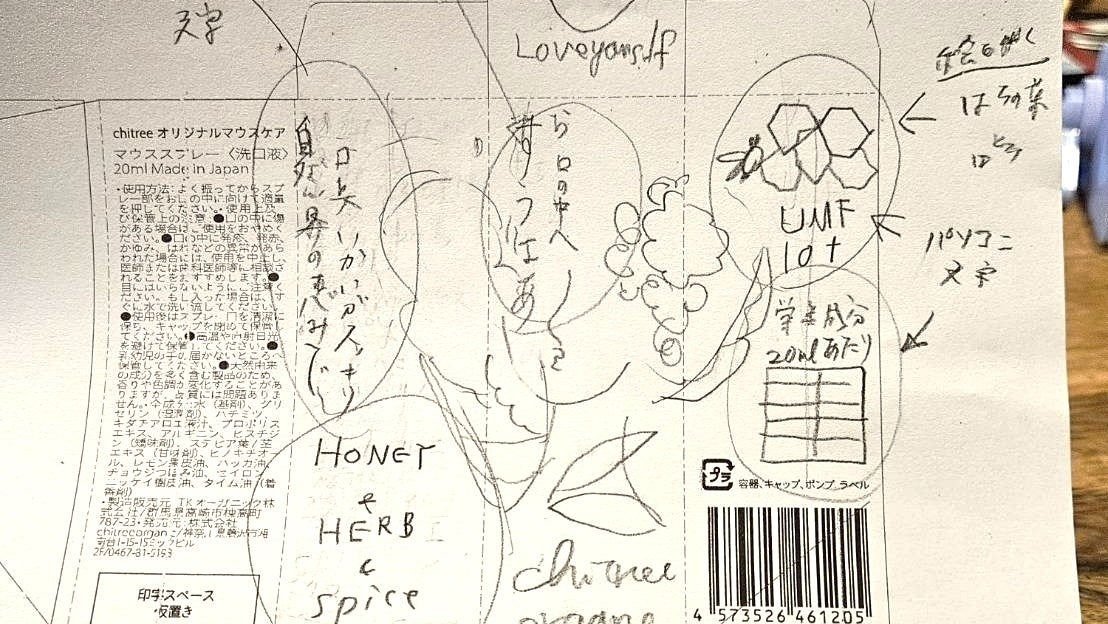 天字
Loveyourslf
chitree オリジナルマウスケア
マウススプレー〈洗口液〉
20ml Made in Japan
・使用方法：よく振ってからスプ
レー部をお口の中に向けて適量
を押してください。・使用上及
び保管上の注意：●口の中に傷
がある場合はご使用をおやめく
ださい。●口の中に発疹、発赤、
かゆみ、はれなどの異常があら
われた場合には、使用を中止し、
医師または歯科医師等に相談さ
れることをおすすめします。●
目にはいらないようにご注意く
ださい。もし入った場合は、す
ぐに水で洗い流してください。
●使用後はスプレー口を清潔に
保ち、キャップを閉めて保管し
てください。●高温や直射日光
を避けて保管してください。●
乳幼児の手の届かないところへ
保管してください。●天然由来
の成分を多く含む製品のため、
香りや色調が変化することがあ
りますが、品質には問題ありま
せん。・全成分：水（基剤）、グリ
セリン（湿潤剤）、ハチミツ、
キダチアロエ液汁、プロポリス
エキス、アルギニン、ヒスチジ
ン（矯味剤）、ステビア葉/茎
エキス（甘味剤）、ヒノキチオー
ル、レモン果皮油、ハッカ油、
チョウジつぼみ油、セイロン
ニッケイ樹皮油、タイム油（着
香剤）
・製造販売元：TKオーガニック株
式会社/群馬県高崎市棟高町
787-23・発売元：株式会社
chitreeorganic/神奈川県藤沢市湘
南台1-15-15ミックビル
2F/0467-81-5193
印字スペース
仮置き
HONEY
&
HERB
&
spice
お口の中へ
chitree
organic
UMF
10+
栄養成分
20mlあたり
プラ
容器、キャップ、ポンプ、ラベル
4 573526 461205
絵を描く
はちの巣
パソコン
文字